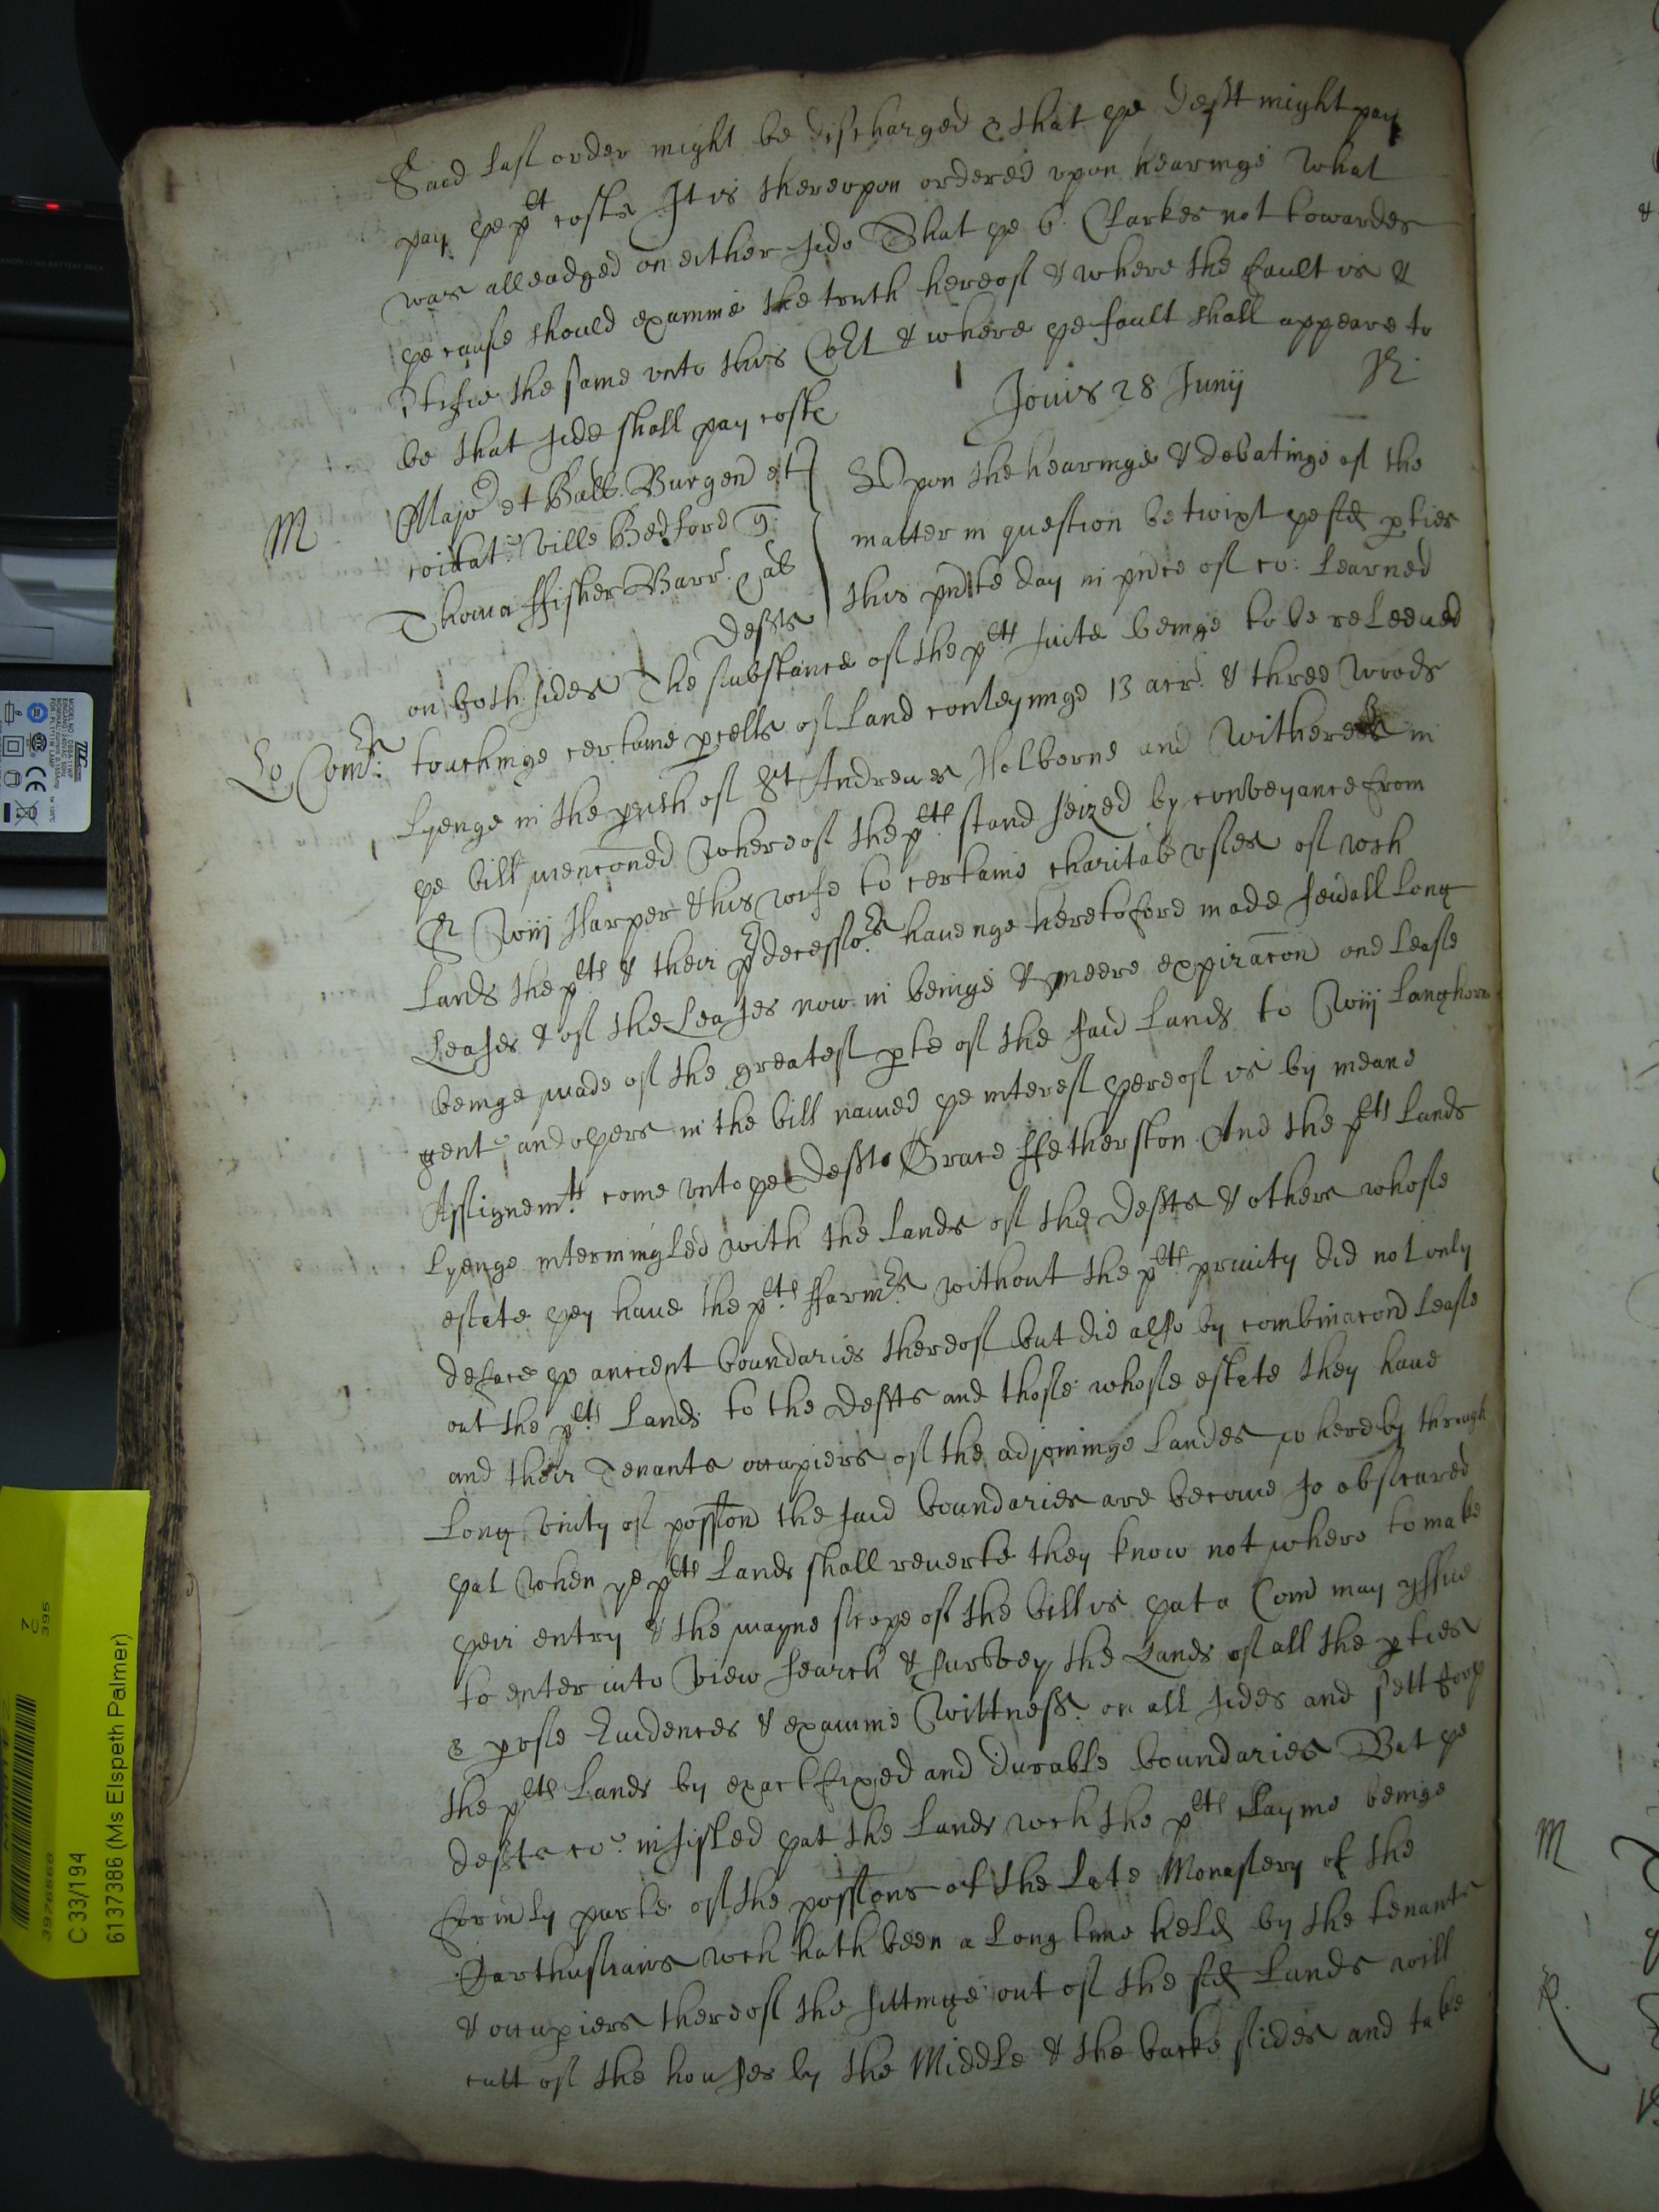 Said last order might be discharged & that ye deft might pay
pay ye plt costs It is thereupon ordered upon hearinge what
was alleadged on either side That ye 6 Clarkes not towardes
ye cause should examine the truth hereof & where the fault is &
certifie the same unto this Cort & where ye fault shall appeare to
be that side shall pay costs
Jovis 28 Junij
M
Major et Ball. Burgen et
coitat ville Bedford q.
Thoma ffisher Barr. et al
Defts
Upon the hearinge & debatinge of the
matter in question betwixt ye sd pties
this pnte day in pnce of co: learned
on both sides The substance of the plts suite beinge to be releeved
Lo Comrs:
touchinge certaine pcells of land conteyninge 13 acr. & three roods
lyenge in the pish of St Andrewes Holborne and in
ye bill menconed whereof the plts stand seized by conveyance from
Sr Wm Harper & his wife to certaine charitab uses of wch
lands the plts & their pdecessors havenge heretofore made sevall long
leases & of the leases now in beinge & neere expiracon one lease
beinge made of the greatest pte of the said lands to Wm Langhorn
gent and oyers in the bill named ye interest yereof is by meane
Assignemts come unto ye Defts Grace ffetherston And the plts lands
lyenge intermingled with the lands of the Defts & others whose
estate yey have the plts ffarmrs without the plts privity did not only
deface ye ancient boundaries thereof but did also by combinacon lease
out the plts lands to the Defts and those whose estate they have
and their Tenants occupiers of the adjoininge landes whereby through
long unity of possion the said boundaries are become so obscured
yat when ye plts lands shall reverte they know not where to make
yeir entry & the mayne scope of the bill is yat a Com may yssue
to enter into view search & survey the Lands of all the pties
& pose Evidences & examine Wittness on all sides and sett forth
the plts lands by exact fixed and durable boundaries But ye
defts co: insisted yat the lands wch the plts clayme beinge
formly parte of the possions of the late Monastery of the
Carthusians wch hath been a long time held by the tenants
& occupiers thereof the settinge out of the sd Lands will
cutt of the houses by the Middle & the backe sides and take
C 33/194
6137386 (Ms Elspeth Palmer)
39766668
395
M